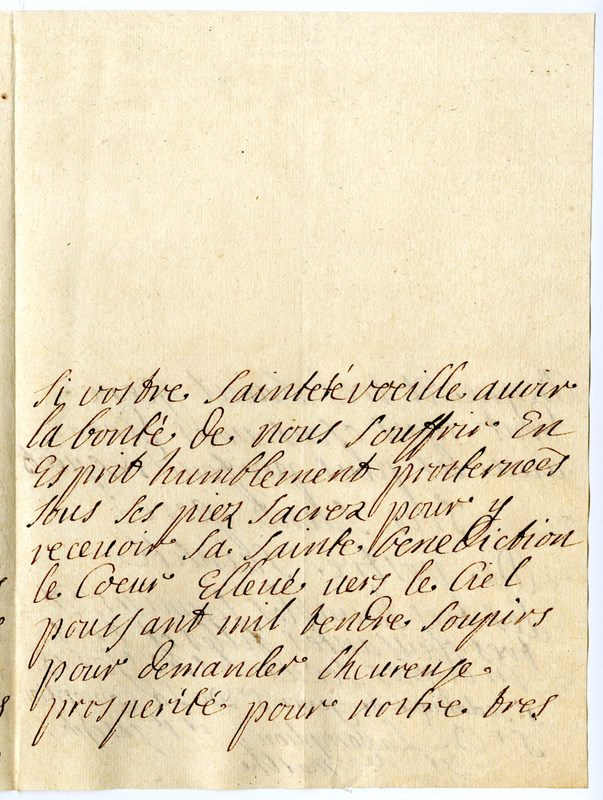 si vostre sainteté voeille auoir
la bonté de nous souffrir En
Esprit humblement prosterneés
sous ses piez sacrez pour y
receuoir sa sainte benediction
le Coeur Elleué uers le Ciel
poussant mil tendre soupirs
pour demander lheureuse
prosperité pour nostre tres